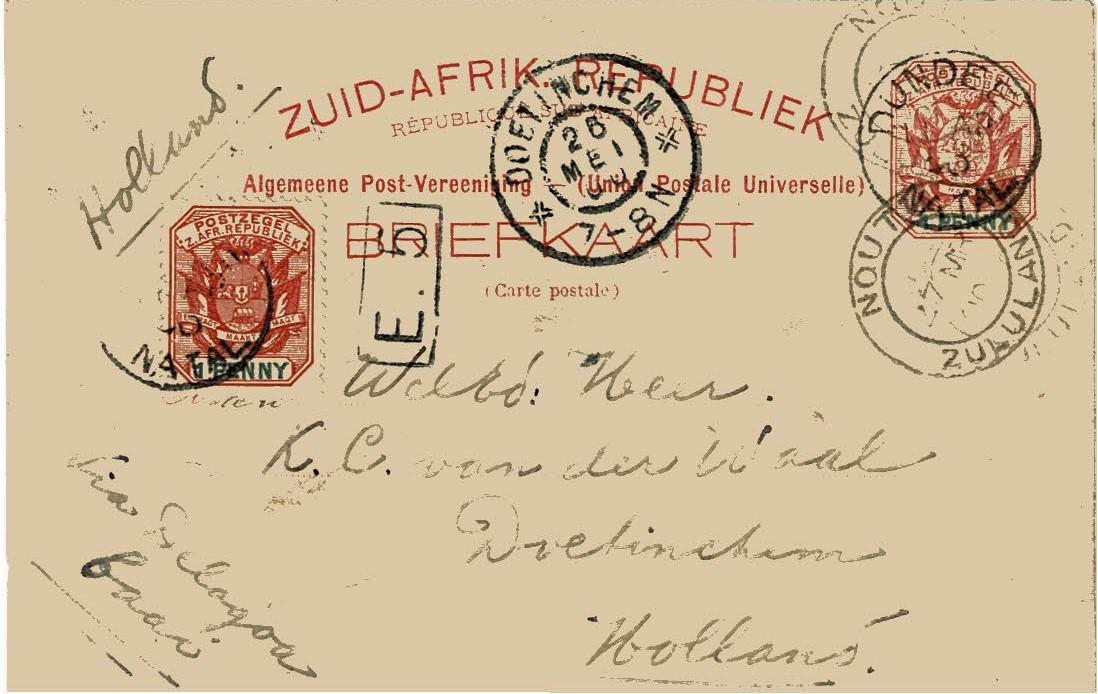 Holland.
ZUID-AFRIK. REPUBLIEK
RÉPUBLIQUE SUD AFRICAINE
Algemeene Post-Vereeniging (Union Postale Universelle)
BRIEFKAART
(Carte postale)
DOETINCHEM
26
MEI
7-8N
NQU
DUNDEE
NATAL
POSTZEGEL
1 PENNY
NQUT
ZULULAND
POSTZEGEL
Z. AFR. REPUBLIEK
EENDRAGT MAAKT MAGT
NATAL
1 PENNY
E. 5
Weled: Heer.
K. C. van der Waal
Doetinchem
Holland.
Via Delagoa
baai